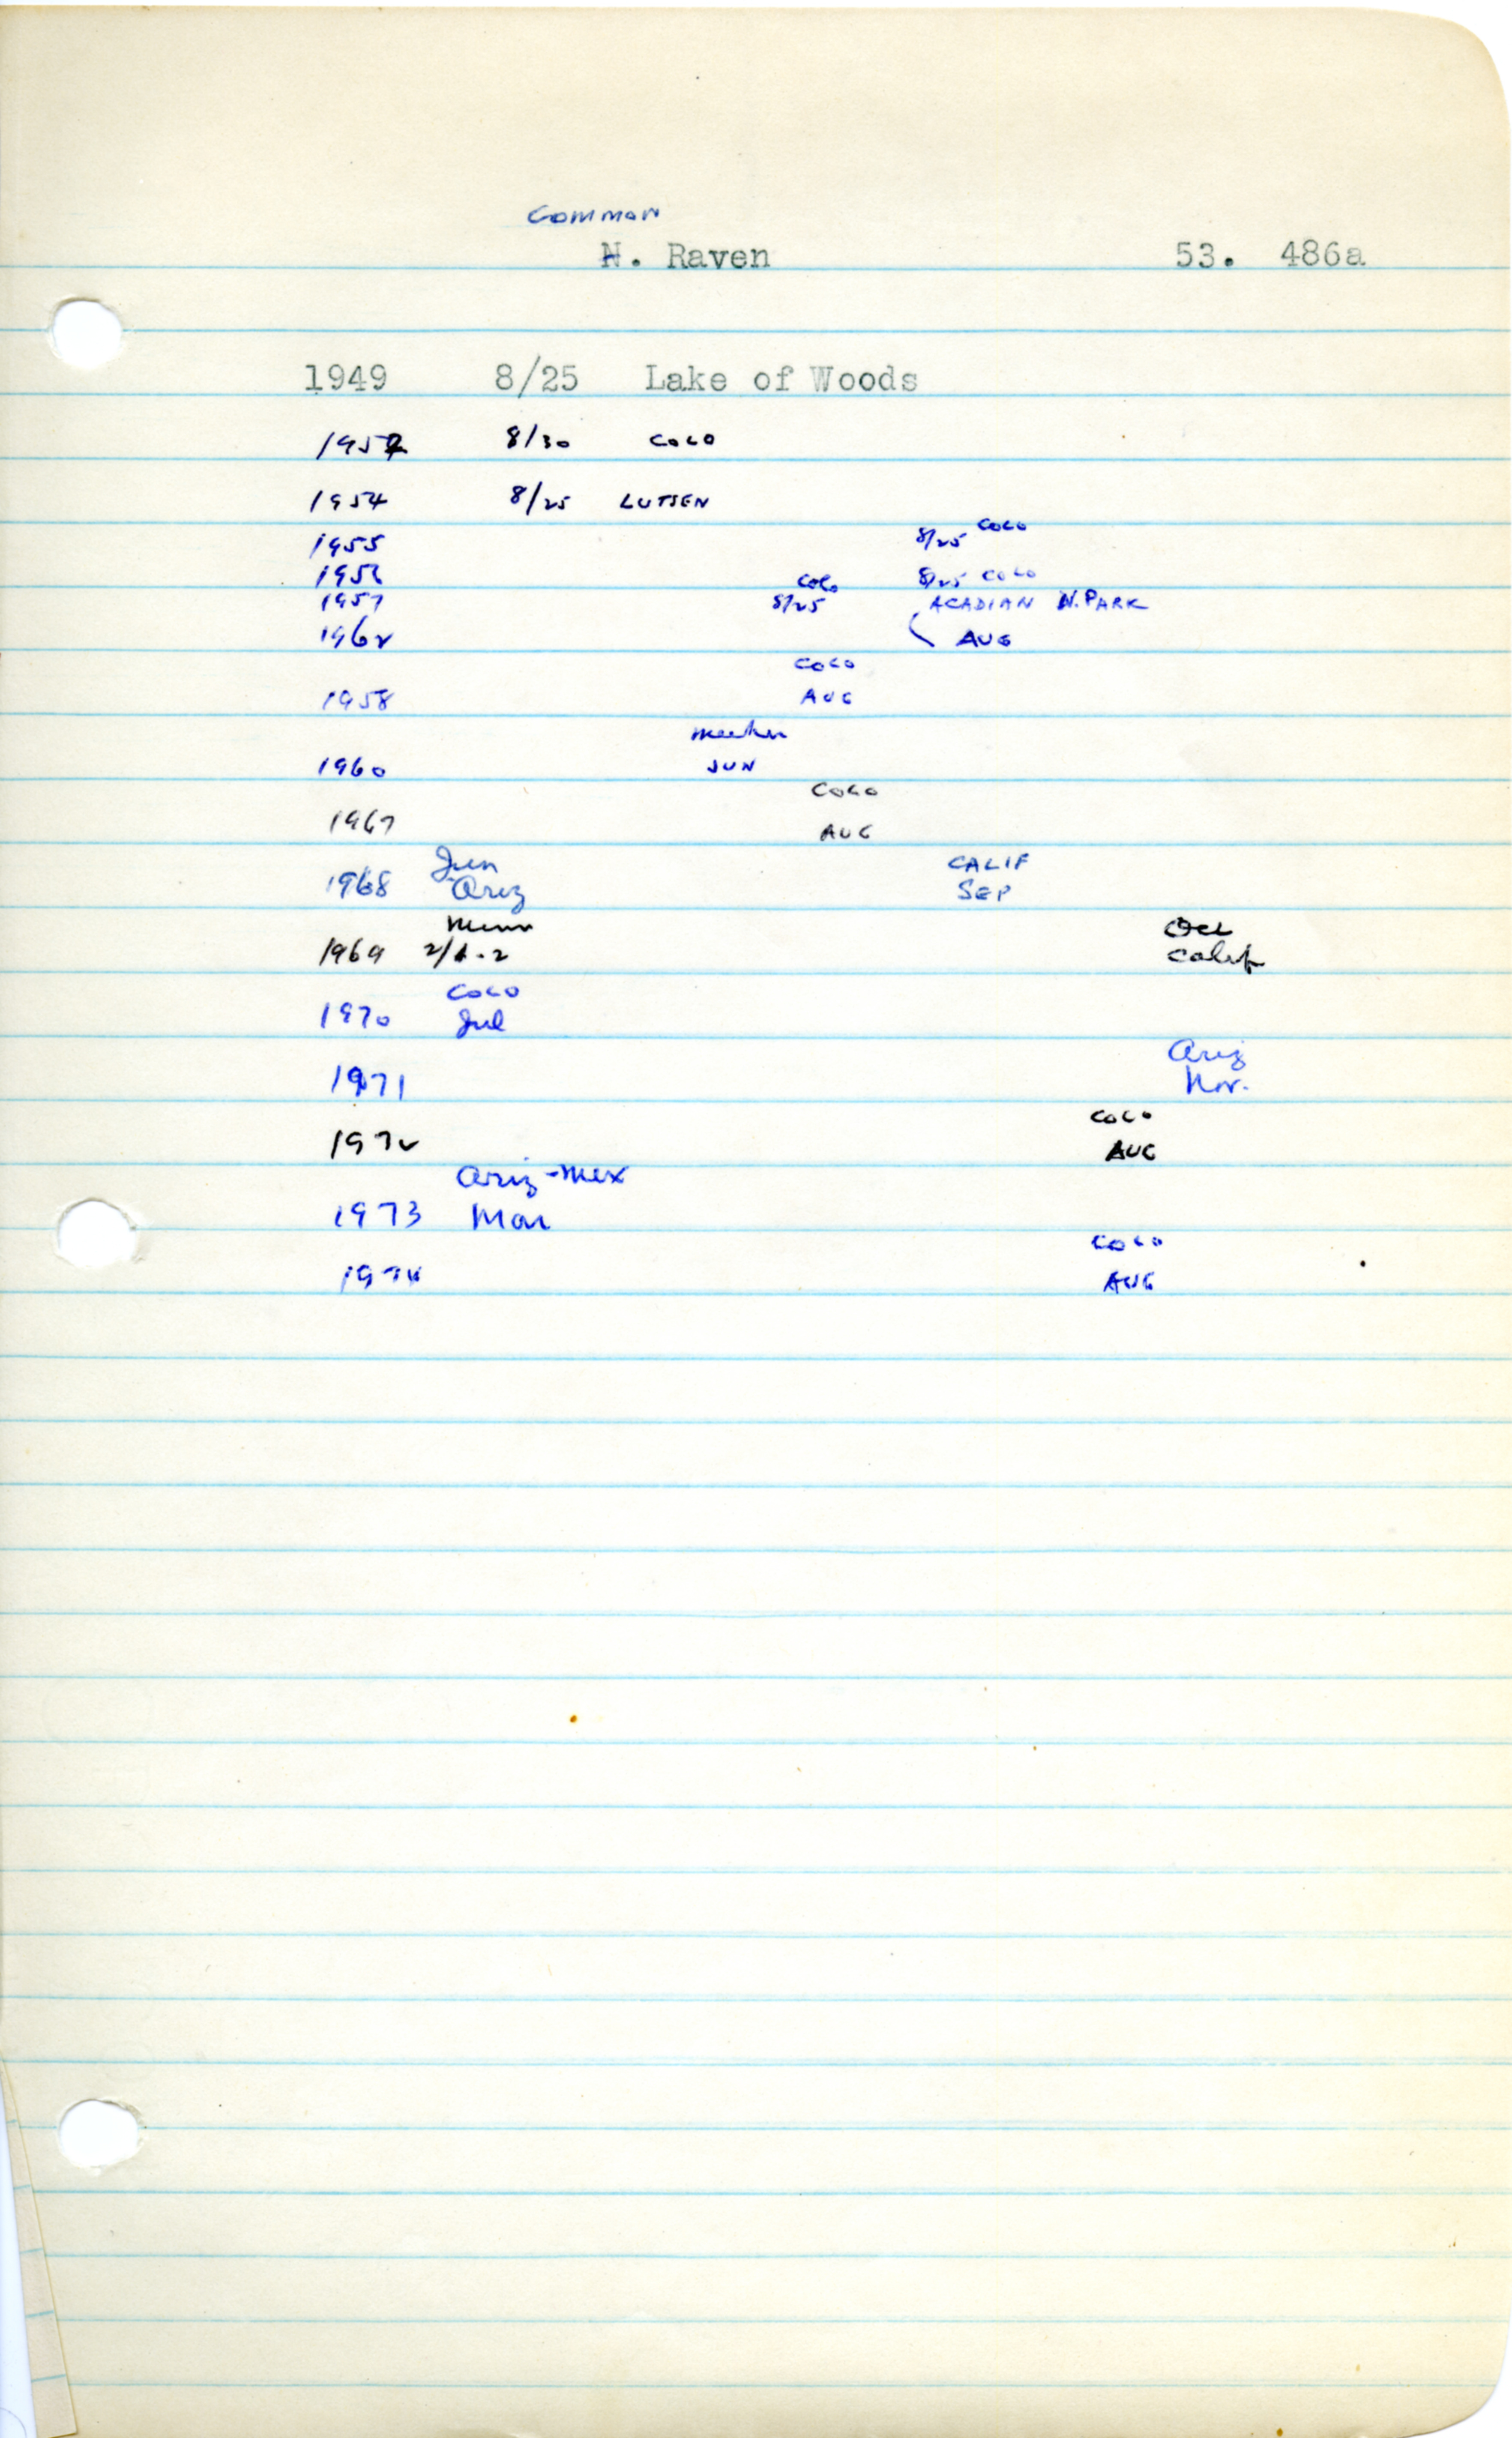 COMMON
N. Raven 53. 486a
1949 8/25 Lake of Woods
1952 8/30 COLO
1954 8/25 LUTSEN
1955 8/25 COLO
1956 8/25 COLO
COLO
1957 8/25 ACADIAN N. PARK
1962 AUG
COLO
1958 AUG
Meeker
1960 JUN
COLO
1967 AUG
Jun CALIF
1968 Ariz SEP
Minn Oct
1969 2/1-2 Calif
COLO
1970 Jul
Ariz
1971 Nov.
COLO
1972 AUG
Ariz-Mex
1973 Mar
COLO
1974 AUG